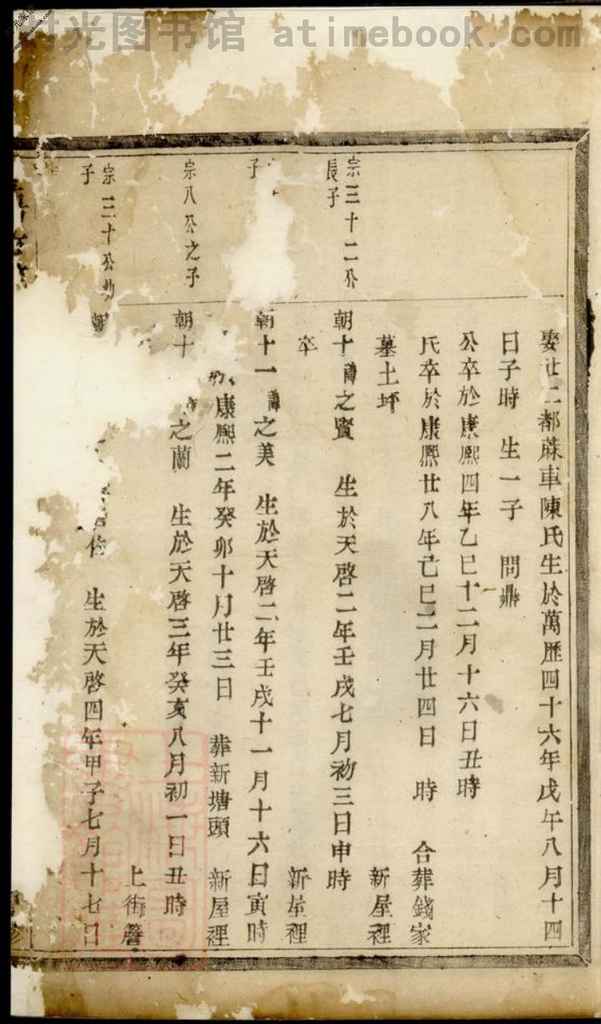 时光图书馆 atimebook.com
娶廿二都蔴車陳氏生於萬歷四十六年戊午八月十四
日子時 生一子 問鼎
公卒於康熙四年乙巳十二月十六日丑時
氏卒於康熙廿八年己巳二月廿四日 時 合葬錢家
墓土坪 新屋裡
宗三十二公
長子
朝十 諱之賓 生於天啓二年壬戌七月初三日申時
卒 新屋裡
子
朝十一 諱之美 生於天啓二年壬戌十一月十六日寅時
康熙二年癸卯十月廿三日 葬新塘頭 新屋裡
宗八公之子
朝十 之蘭 生於天啓三年癸亥八月初一日丑時
上街
宗三十公
子
朝 生於天啓四年甲子七月十七日